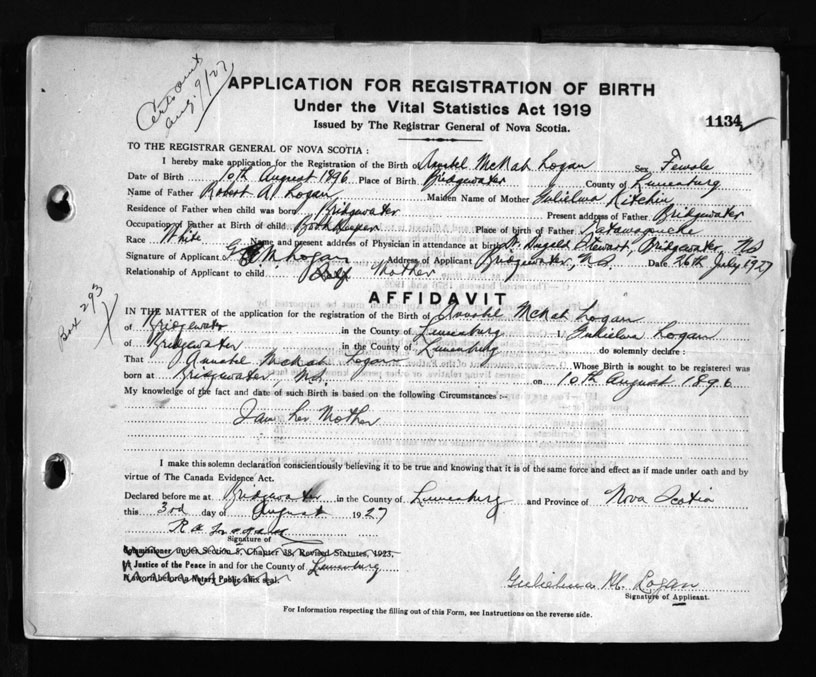 Cert. sent
Aug. 9/27
APPLICATION FOR REGISTRATION OF BIRTH
Under the Vital Statistics Act 1919
Issued by The Registrar General of Nova Scotia.
1134
TO THE REGISTRAR GENERAL OF NOVA SCOTIA :
I hereby make application for the Registration of the Birth of Annabel McNab Logan Sex Female
Date of Birth 10th August 1896 Place of Birth Bridgewater County of Lunenburg
Name of Father Robert A. Logan Maiden Name of Mother Gulielma Kitchin
Residence of Father when child was born Bridgewater Present address of Father Bridgewater
Occupation of Father at Birth of child Book Keeper Place of birth of Father
Race White Name and present address of Physician in attendance at birth Dr. Dugald Stewart, Bridgewater, NS
Signature of Applicant G M Logan Address of Applicant Bridgewater, N.S. Date 26th July 1927
Relationship of Applicant to child Self Mother
AFFIDAVIT
Box 293
IN THE MATTER of the application for the registration of the Birth of Annabel McNab Logan
of Bridgewater in the County of Lunenburg I, Gulielma Logan
of Bridgewater in the County of Lunenburg do solemnly declare :
That Annabel McNab Logan Whose Birth is sought to be registered was
born at Bridgewater, N.S. on 10th August 1896
My knowledge of the fact and date of such Birth is based on the following Circumstances :-
I am her Mother
I make this solemn declaration conscientiously believing it to be true and knowing that it is of the same force and effect as if made under oath and by
virtue of The Canada Evidence Act.
Declared before me at Bridgewater in the County of Lunenburg and Province of Nova Scotia
this 3rd day of August 1927
Signature of
Commissioner under Section 8, Chapter 38, Revised Statutes, 1923,
Justice of the Peace in and for the County of Lunenburg
If sworn before a Notary Public affix seal.
Gulielma M. Logan
Signature of Applicant.
For Information respecting the filling out of this Form, see Instructions on the reverse side.